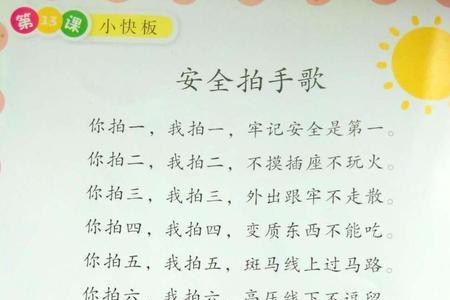 第13课 小快板
安全拍手歌
你拍一，我拍一，牢记安全是第一。
你拍二，我拍二，不摸插座不玩火。
你拍三，我拍三，外出跟牢不走散。
你拍四，我拍四，变质东西不能吃。
你拍五，我拍五，斑马线上过马路。
你拍六，我拍六，高压线下不逗留。